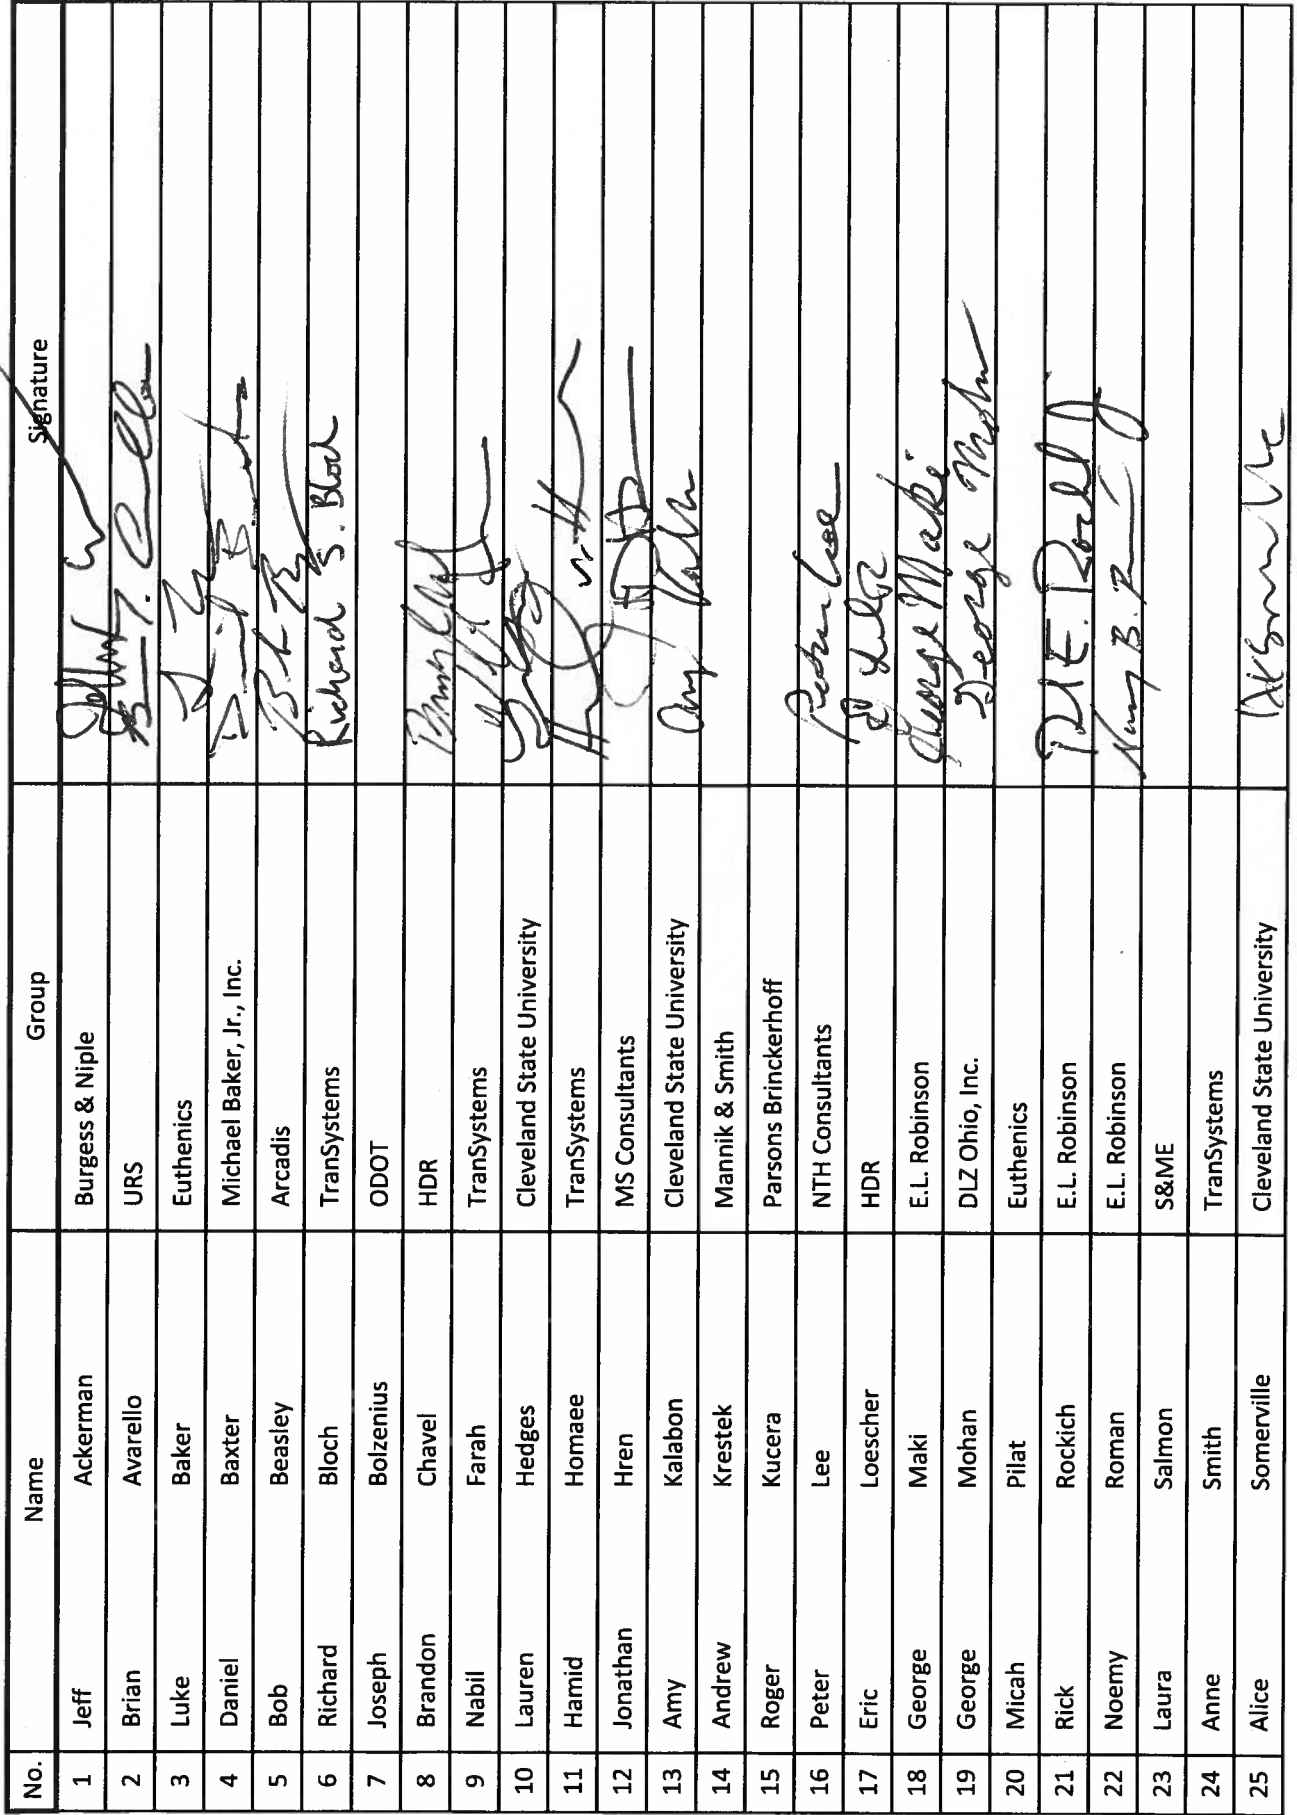 No. Name Group Signature
1 Jeff Ackerman Burgess & Niple
2 Brian Avarello URS
3 Luke Baker Euthenics
4 Daniel Baxter Michael Baker, Jr., Inc.
5 Bob Beasley Arcadis
6 Richard Bloch TranSystems Richard S. Bloch
7 Joseph Bolzenius ODOT
8 Brandon Chavel HDR
9 Nabil Farah TranSystems
10 Lauren Hedges Cleveland State University
11 Hamid Homaee TranSystems
12 Jonathan Hren MS Consultants
13 Amy Kalabon Cleveland State University Amy
14 Andrew Krestek Mannik & Smith
15 Roger Kucera Parsons Brinckerhoff
16 Peter Lee NTH Consultants Peter Lee
17 Eric Loescher HDR
18 George Maki E.L. Robinson George Maki
19 George Mohan DLZ Ohio, Inc. George Mohan
20 Micah Pilat Euthenics
21 Rick Rockich E.L. Robinson
22 Noemy Roman E.L. Robinson
23 Laura Salmon S&ME
24 Anne Smith TranSystems
25 Alice Somerville Cleveland State University